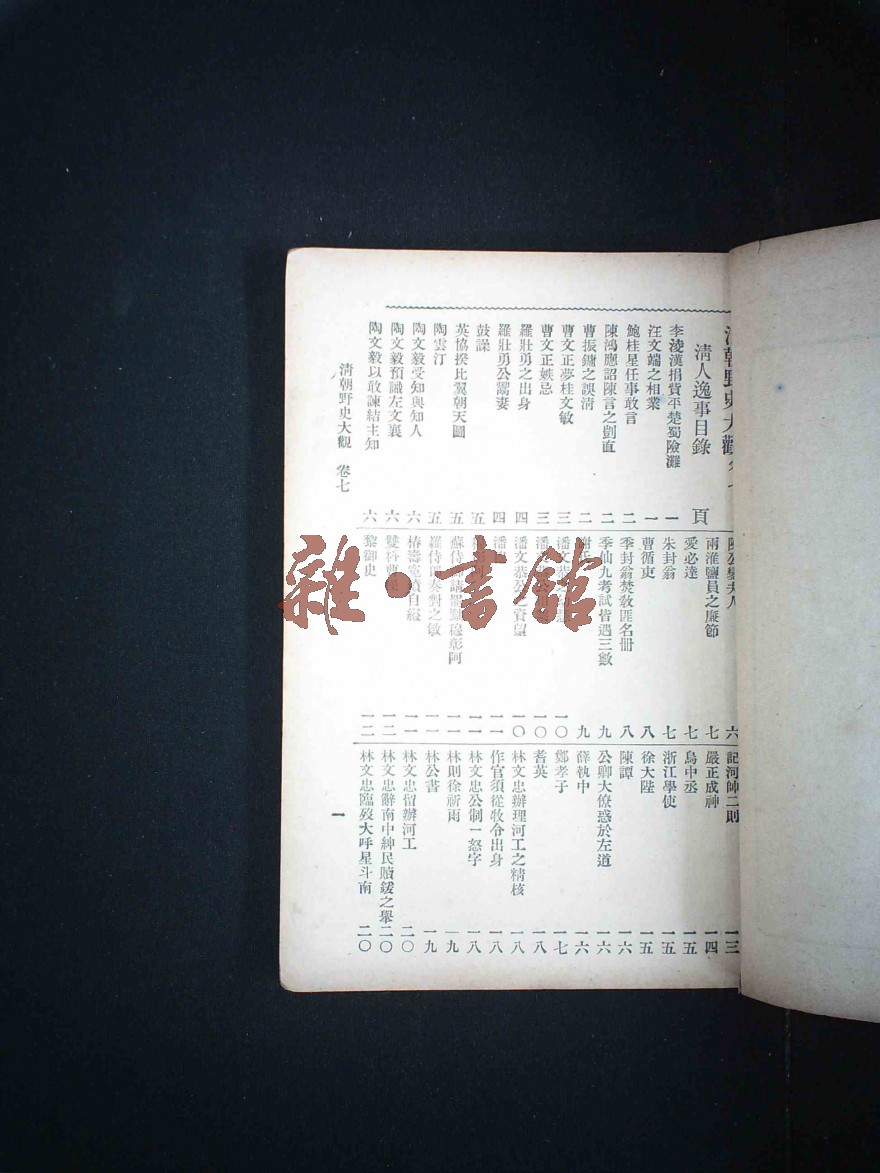 清朝野史大觀
清人逸事目錄
頁
李淩漢捐貲平楚蜀險灘 一
汪文端之相業 一
鮑桂星任事敢言 二
陳鴻應詔陳言之剴直 二
曹振鏞之誤清 二
曹文正夢桂文敏 三
曹文正嫉忌 三
羅壯勇之出身 四
羅壯勇公鬻妻 四
鼓譟 五
英協揆比翼朝天圖 五
陶雲汀 五
陶文毅受知與知人 六
陶文毅預識左文襄 六
陶文毅以敢諫結主知 六
陳公變夫人 六
兩淮鹽員之廉節 七
愛必達 七
朱封翁 七
曹循吏 八
季封翁焚敎匪名册 八
季仙九考試皆遇三數 九
九
潘文恭 一〇
潘 一〇
潘文恭公之資望 一〇
潘 一一
一一
蘇侍郎請罷 穆彰阿 一一
羅侍郎奏對之敏 一一
椿壽 自縊 一一
雙 一二
黎御史 一二
記河帥二則 一三
嚴正成神 一四
烏中丞 一五
浙江學使 一五
徐大陛 一五
陳譚 一六
公卿大僚惑於左道 一六
薛執中 一六
鄭孝子 一七
耆英 一八
林文忠辦理河工之精核 一八
作官須從牧令出身 一八
林文忠公制一怒字 一八
林則徐祈雨 一九
林公書 一九
林文忠留辦河工 二〇
林文忠辭南中紳民贖鍰之舉 二〇
林文忠臨歿大呼星斗南 二〇
清朝野史大觀 卷七
一
雜·書館